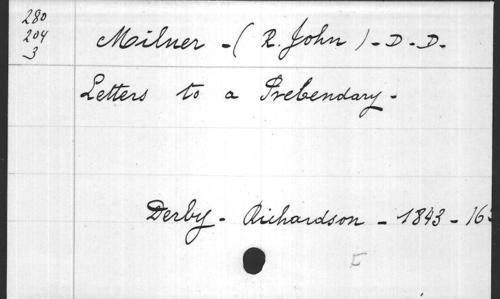 280
204
3
Milner - ( R. John ) - D - D -
Letters to a Prebendary -
Derby - Richardson - 1843 - 16
E